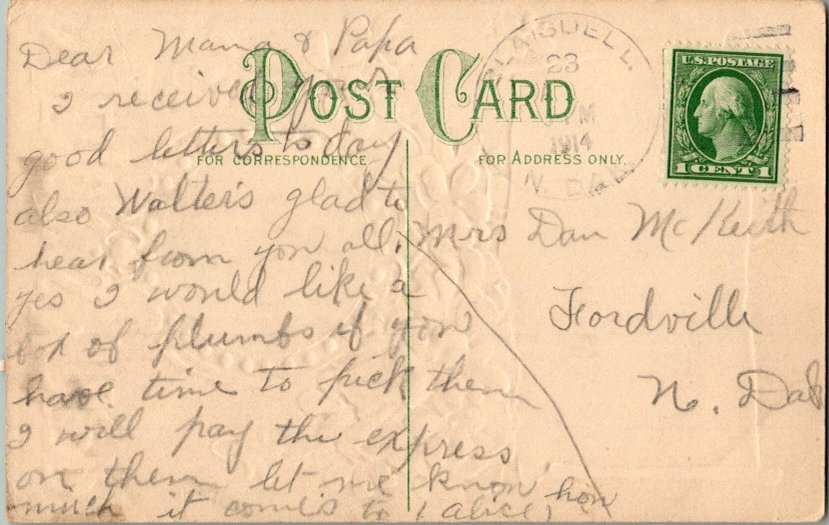 Dear Mama & Papa
I received your
good letters to day
also Walter's glad to
hear from you all.
yes I would like a
bx of plumbs if you
have time to pick them
I will pay the express
on them let me know hon
much it comes to (alice)
POST CARD
FOR CORRESPONDENCE
FOR ADDRESS ONLY.
BLAISDELL.
23
PM
1914
N. DAK.
U.S. POSTAGE
1 CENT 1
Mrs Dan McKeith
Fordville
N. Dak